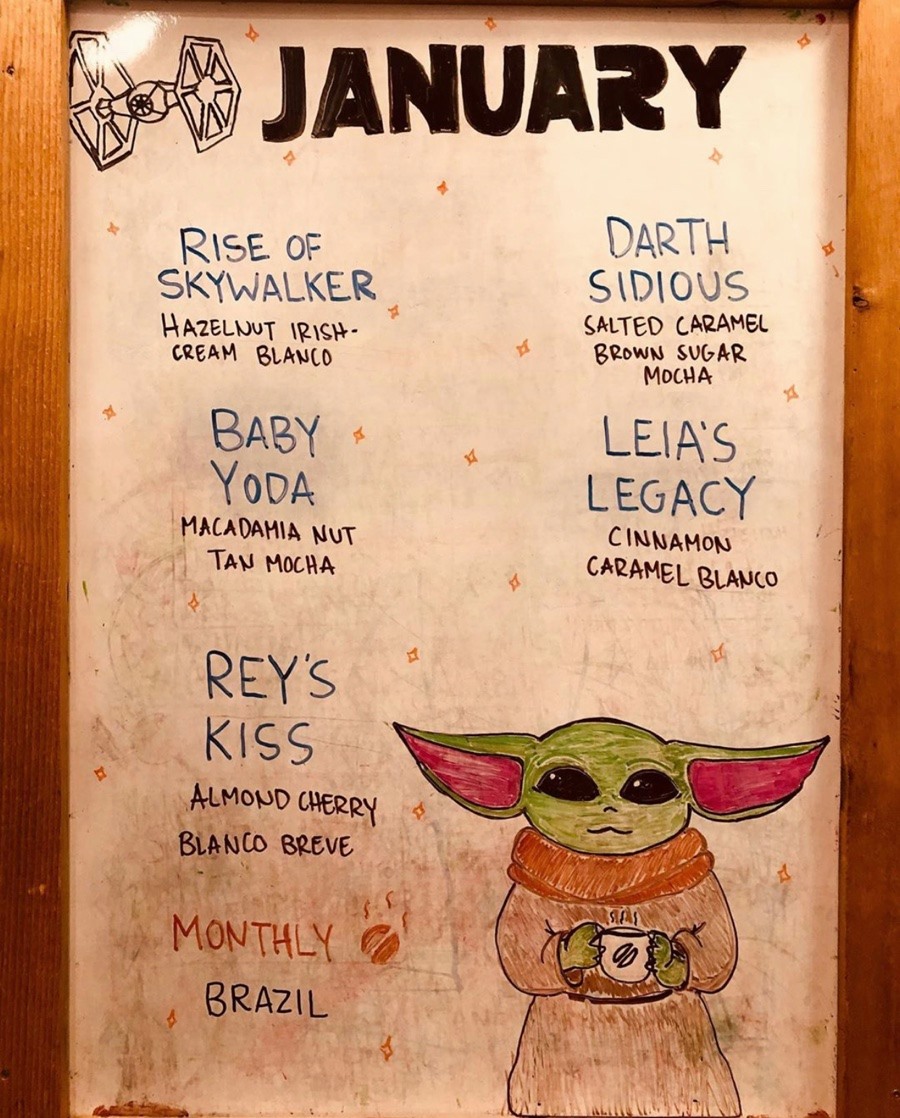 JANUARY
RISE OF
SKYWALKER
HAZELNUT IRISH-
CREAM BLANCO
DARTH
SIDIOUS
SALTED CARAMEL
BROWN SUGAR
MOCHA
BABY
YODA
MACADAMIA NUT
TAN MOCHA
LEIA'S
LEGACY
CINNAMON
CARAMEL BLANCO
REY'S
KISS
ALMOND CHERRY
BLANCO BREVE
MONTHLY
BRAZIL